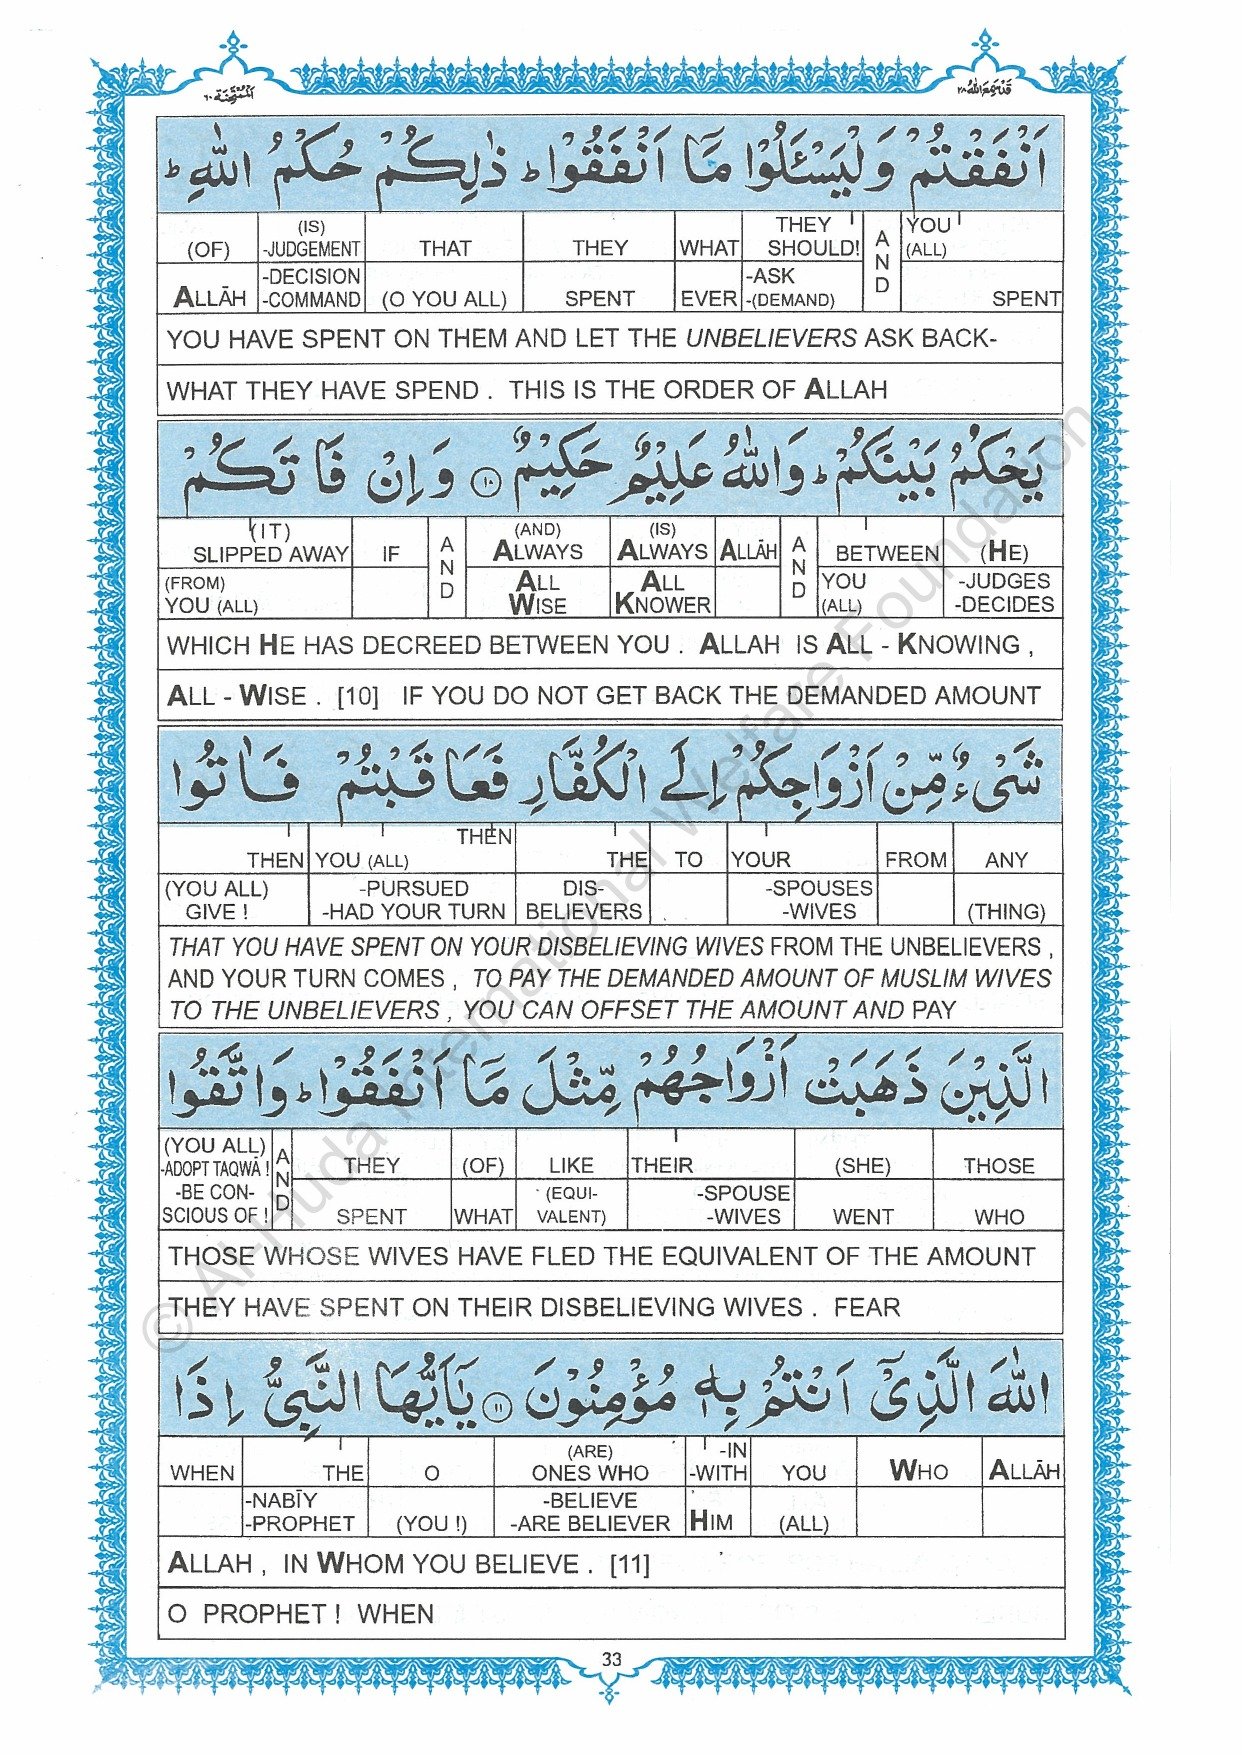 الممتحنة ٦٠
قد سمع الله ٢٨
اَنْفَقْتُمْ وَلْيَسْـَٔلُوْا مَاۤ اَنْفَقُوْا ؕ ذٰلِكُمْ حُكْمُ اللّٰهِ ؕ
(OF) (IS) -JUDGEMENT THAT THEY WHAT THEY SHOULD! AND YOU (ALL)
ALLĀH -DECISION -COMMAND (O YOU ALL) SPENT EVER -ASK -(DEMAND) SPENT
YOU HAVE SPENT ON THEM AND LET THE UNBELIEVERS ASK BACK-
WHAT THEY HAVE SPEND . THIS IS THE ORDER OF ALLAH
يَحْكُمُ بَيْنَكُمْ ؕ وَاللّٰهُ عَلِيْمٌ حَكِيْمٌ ١٠ وَاِنْ فَاتَكُمْ
(IT) SLIPPED AWAY IF AND (AND) ALWAYS (IS) ALWAYS ALLĀH AND BETWEEN (HE)
(FROM) YOU (ALL) ALL WISE ALL KNOWER YOU (ALL) -JUDGES -DECIDES
WHICH HE HAS DECREED BETWEEN YOU . ALLAH IS ALL - KNOWING ,
ALL - WISE . [10] IF YOU DO NOT GET BACK THE DEMANDED AMOUNT
شَیْءٌ مِّنْ اَزْوَاجِكُمْ اِلَی الْكُفَّارِ فَعَاقَبْتُمْ فَاٰتُوا
THEN YOU (ALL) THEN THE TO YOUR FROM ANY
(YOU ALL) GIVE ! -PURSUED -HAD YOUR TURN DIS- BELIEVERS -SPOUSES -WIVES (THING)
THAT YOU HAVE SPENT ON YOUR DISBELIEVING WIVES FROM THE UNBELIEVERS ,
AND YOUR TURN COMES , TO PAY THE DEMANDED AMOUNT OF MUSLIM WIVES
TO THE UNBELIEVERS , YOU CAN OFFSET THE AMOUNT AND PAY
الَّذِيْنَ ذَهَبَتْ اَزْوَاجُهُمْ مِّثْلَ مَاۤ اَنْفَقُوْا ؕ وَاتَّقُوا
(YOU ALL) -ADOPT TAQWĀ ! AND THEY (OF) LIKE THEIR (SHE) THOSE
-BE CON- SCIOUS OF ! SPENT WHAT (EQUI- VALENT) -SPOUSE -WIVES WENT WHO
THOSE WHOSE WIVES HAVE FLED THE EQUIVALENT OF THE AMOUNT
THEY HAVE SPENT ON THEIR DISBELIEVING WIVES . FEAR
اللّٰهَ الَّذِیْۤ اَنْتُمْ بِهٖ مُؤْمِنُوْنَ ١١ يٰۤاَيُّهَا النَّبِیُّ اِذَا
WHEN THE O (ARE) ONES WHO -IN -WITH YOU WHO ALLĀH
-NABĪY -PROPHET (YOU !) -BELIEVE -ARE BELIEVER HIM (ALL)
ALLAH , IN WHOM YOU BELIEVE . [11]
O PROPHET ! WHEN
33
© Al-Huda International Welfare Foundation